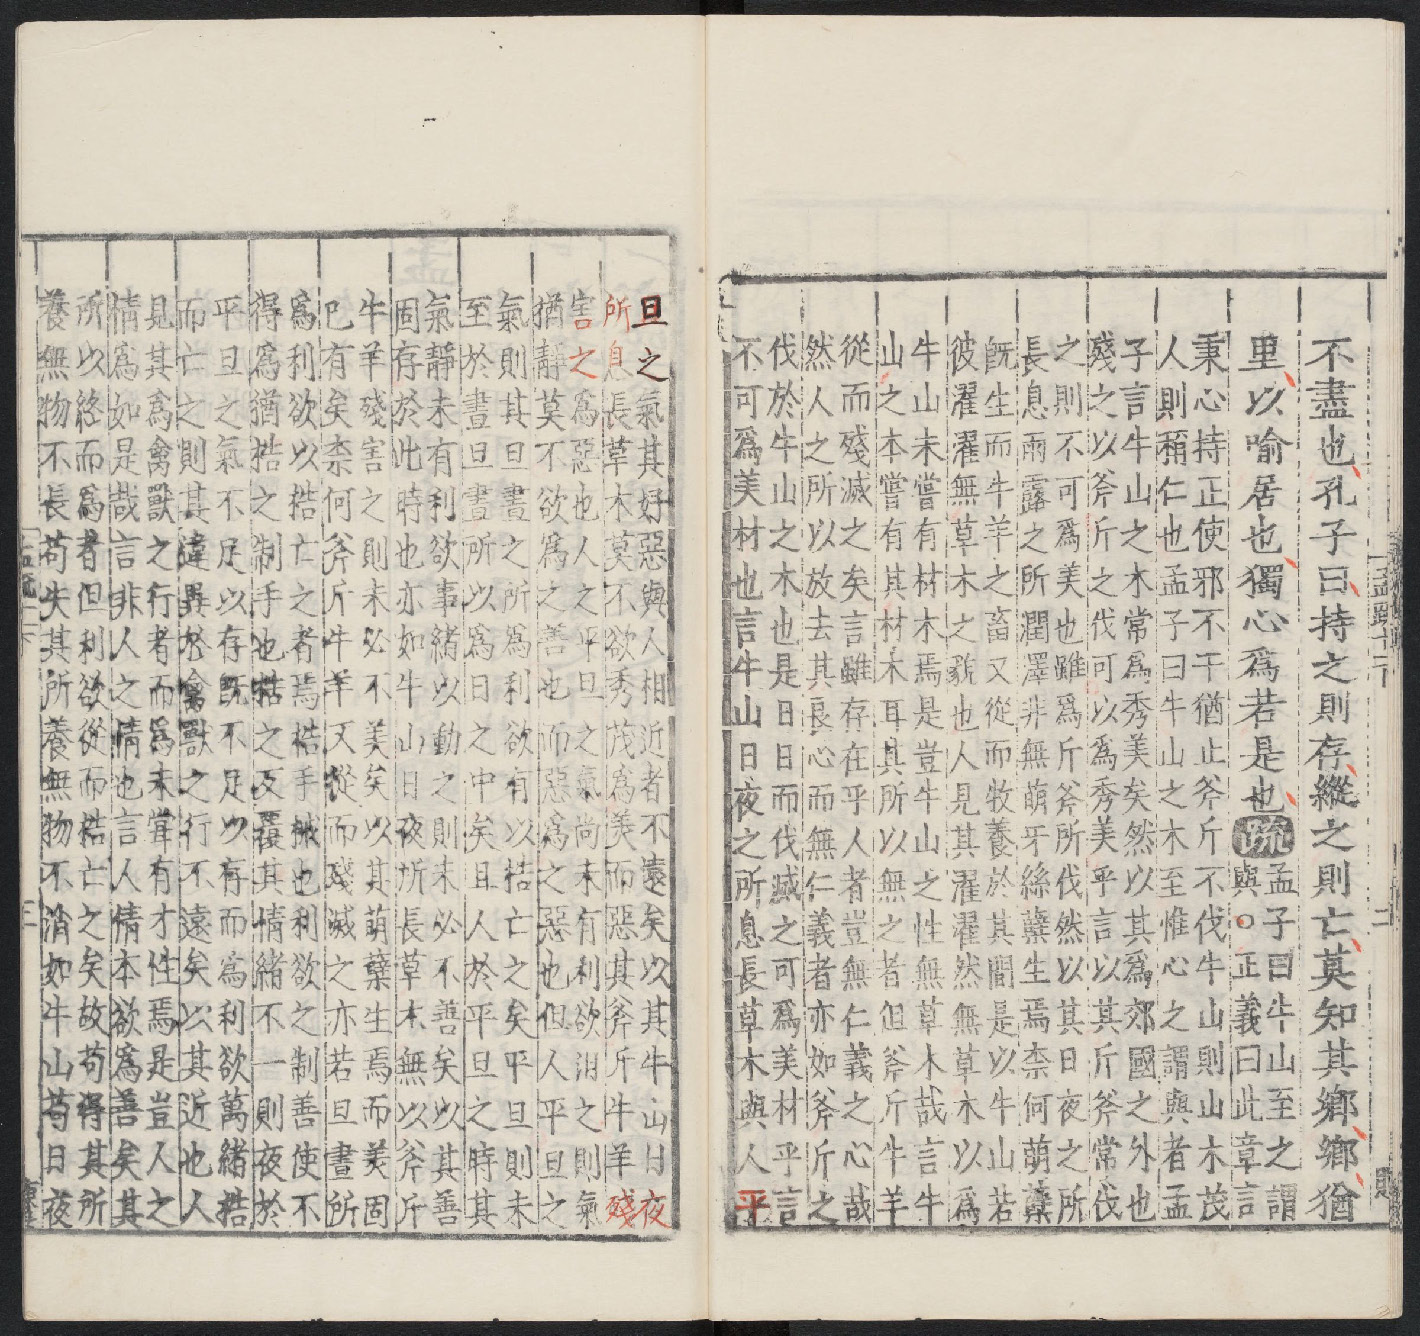 不盡也孔子曰持之則存縱之則亡莫知其鄉鄉猶
里以喻居也獨心爲若是也疏孟子曰牛山至之謂
與○正義曰此章言
秉心持正使邪不干猶止斧斤不伐牛山則山木茂
人則稱仁也孟子曰牛山之木至惟心之謂與者孟
子言牛山之木常爲秀美矣然以其爲郊國之外也
殘之以斧斤之伐可以爲秀美乎言以其斤斧常伐
之則不可爲美也雖爲斤斧所伐然以其日夜之所
長息雨露之所潤澤非無萌牙絲蘖生焉柰何萌蘖
旣生而牛羊之畜又從而牧養於其間是以牛山若
彼濯濯無草木之貌也人見其濯濯然無草木以爲
牛山未嘗有材木焉是豈牛山之性無草木哉言牛
山之本嘗有其材木耳其所以無之者但斧斤牛羊
從而殘滅之矣言雖存在乎人者豈無仁義之心哉
然人之所以放去其良心而無仁義者亦如斧斤之
伐於牛山之木也是日日而伐滅之可爲美材乎言
不可爲美材也言牛山日夜之所息長草木與人平
旦之氣其好惡與人相近者不遠矣以其牛山日夜
所息長草木莫不欲秀茂爲美而惡其斧斤牛羊殘
害之爲惡也人之平旦之氣尚未有利欲汨之則氣
猶靜莫不欲爲之善也而惡爲之惡也但人平旦之
氣則其旦晝之所爲利欲有以梏亡之矣平旦則未
至於晝旦晝所以爲日之中矣且人於平旦之時其
氣靜未有利欲事緒以動之則未必不善矣以其善
固存於此時也亦如牛山日夜所長草木無以斧斤
牛羊殘害之則未必不美矣以其萌蘖生焉而美固
已有矣柰何斧斤牛羊又從而殘滅之亦若旦晝所
爲利欲以梏亡之者焉梏手械也利欲之制善使不
得爲猶梏之制手也梏之反覆其情緒不一則夜於
平旦之氣不足以存旣不足以存而爲利欲萬緒梏
而亡之則其違異於禽獸之行不遠矣以其近也人
見其爲禽獸之行者而爲未嘗有才性焉是豈人之
情爲如是哉言非人之情也言人情本欲爲善矣其
所以終而爲者但利欲從而梏亡之矣故苟得其所
養無物不長苟失其所養無物不消如牛山苟日夜